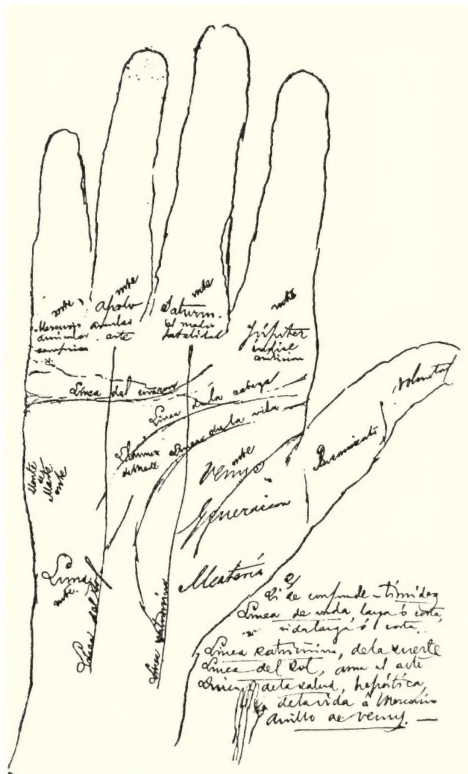 monte
Mercurio
monte
Apolo
anular
arte
mte
Saturn.
el medio
fatalidad
mte
Júpiter
índice
ambición
Línea del corazon
Línea de la cabeza
Línea de la vida
Llanura
de Marte
Monte
de
Marte
mte
Venus
Generacion
Materia
voluntad
Luna
mte.
Línea del Sol
Línea saturnina
Si se confunde - timidez
Línea de vida larga ó corta,
vida larga ó corta.
Línea saturnina, de la suerte
Línea del Sol, ame el arte
Línea de la salud, hepática,
de la vida á Mercurio
Anillo de Venus. —